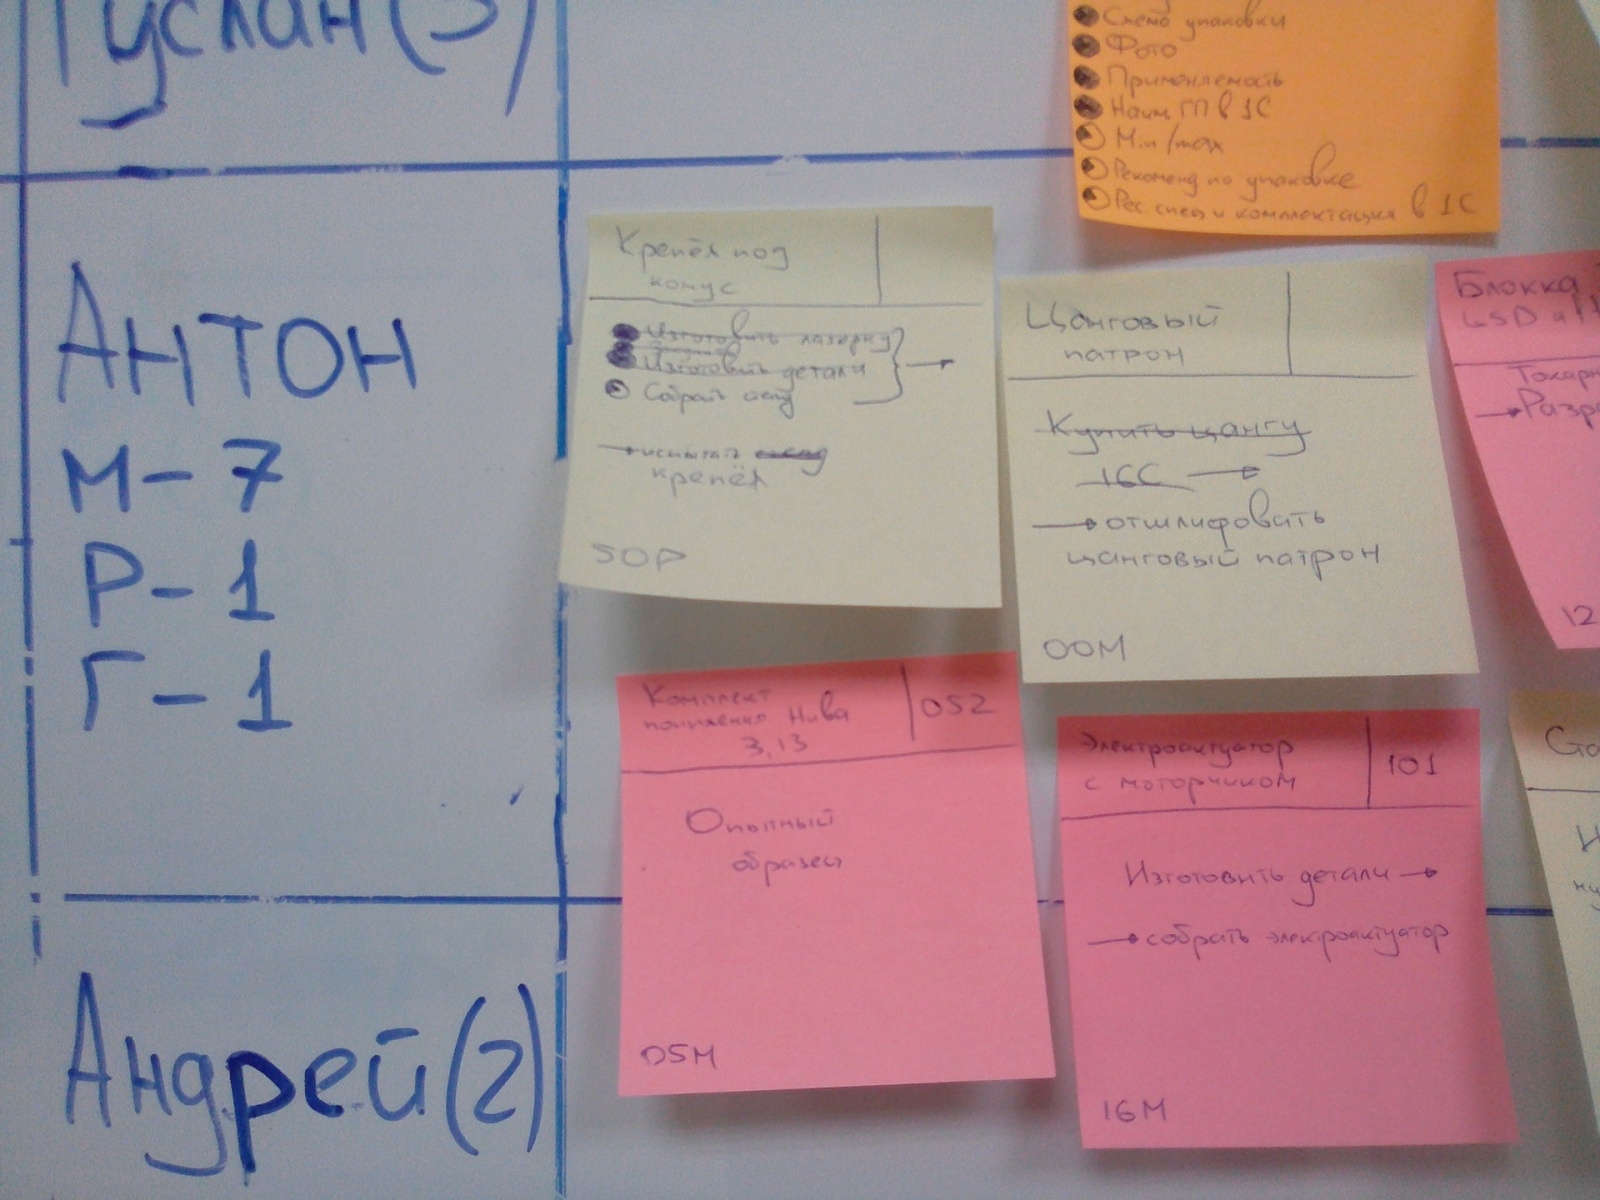 Руслан (3)
Схема упаковки
Фото
Применяемость
Наим ГП в 1С
Min/max
Рекоменд по упаковке
Рес. спец и комплектация в 1С
Антон
М - 7
Р - 1
Г - 1
Крепёж под
конус
Изготовить лазерку
Изготовить детали
Собрать стенд
испытать стенд
крепёж
50Р
Цанговый
патрон
Купить цангу
16С
отшлифовать
цанговый патрон
00М
Блокка
Токарн
Разр
12
Комплект
понижения Нива
3,13
052
Опытный
образец
05М
Электроактуатор
с моторчиком
101
Изготовить детали
собрать электроактуатор
16М
Ста
Андрей (2)